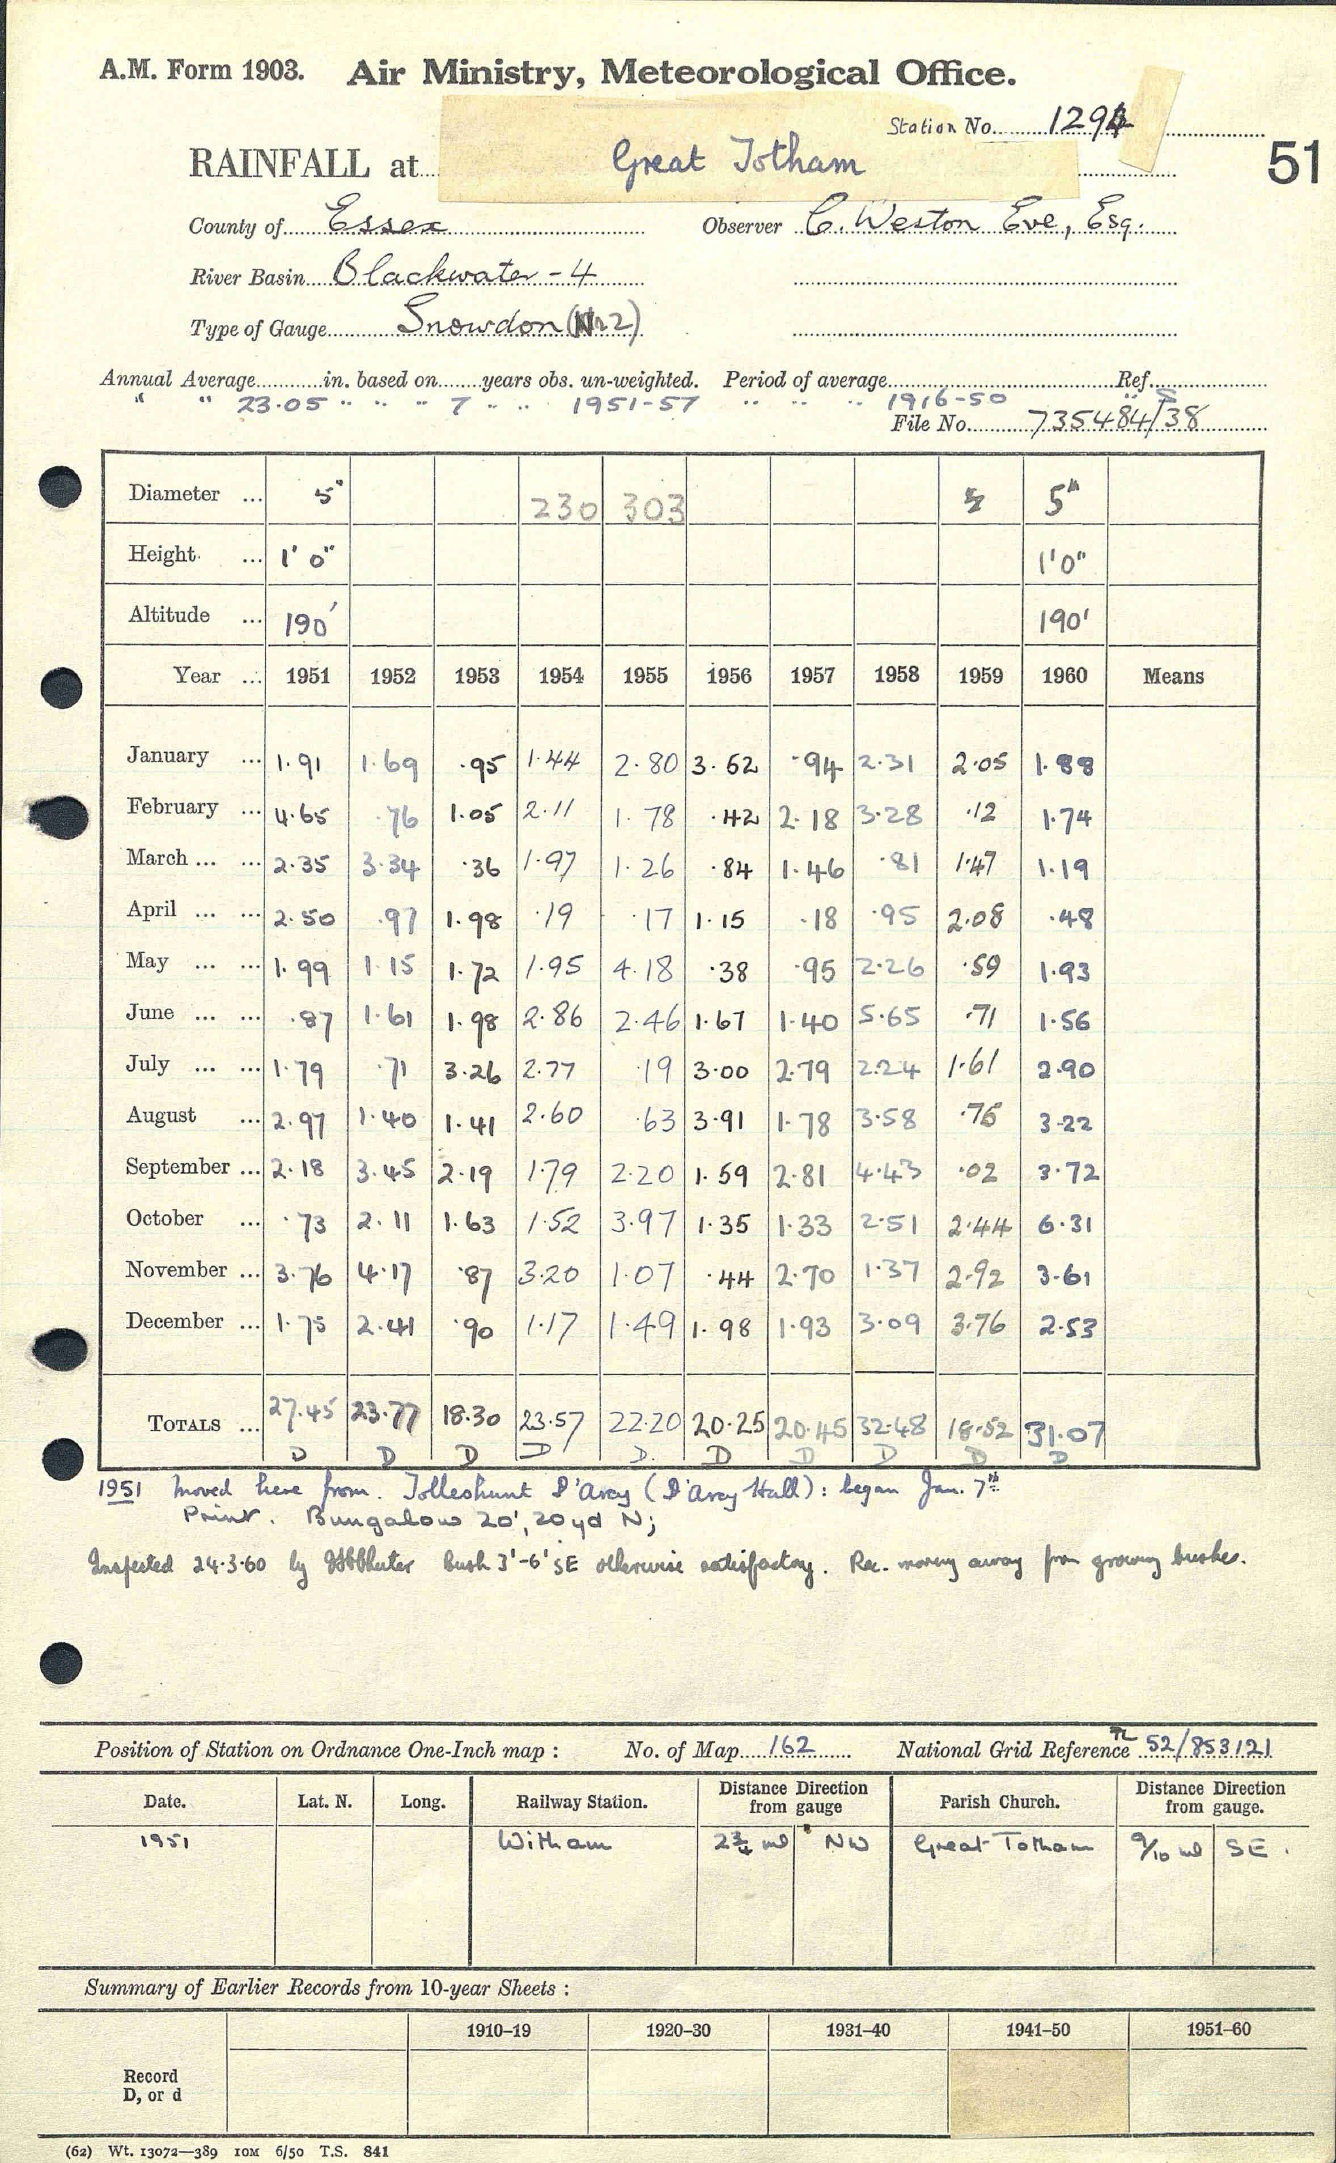 A.M. Form 1903. Air Ministry, Meteorological Office.
Station No. 1294
RAINFALL at Great Totham 51
County of Essex Observer C. Weston Eve, Esq.
River Basin Blackwater - 4
Type of Gauge Snowdon (No 2)
Annual Average in. based on years obs. un-weighted. Period of average Ref.
" " 23.05 " " " 7 " " 1951-57 " " " 1916-50 " S
File No. 735484/38
Diameter ... 5" 230 303 5 5"
Height ... 1' 0" 1'0"
Altitude ... 190' 190'
Year ... 1951 1952 1953 1954 1955 1956 1957 1958 1959 1960 Means
January ... 1.91 1.69 .95 1.44 2.80 3.62 .94 2.31 2.05 1.88
February ... 4.65 .76 1.05 2.11 1.78 .42 2.18 3.28 .12 1.74
March ... ... 2.35 3.34 .36 1.97 1.26 .84 1.46 .81 1.47 1.19
April ... ... 2.50 .97 1.98 .19 .17 1.15 .18 .95 2.08 .48
May ... ... 1.99 1.15 1.72 1.95 4.18 .38 .95 2.26 .59 1.93
June ... ... .87 1.61 1.98 2.86 2.46 1.67 1.40 5.65 .71 1.56
July ... ... 1.79 .71 3.26 2.77 .19 3.00 2.79 2.24 1.61 2.90
August ... 2.97 1.40 1.41 2.60 .63 3.91 1.78 3.58 .75 3.22
September ... 2.18 3.45 2.19 1.79 2.20 1.59 2.81 4.43 .02 3.72
October ... .73 2.11 1.63 1.52 3.97 1.35 1.33 2.51 2.44 6.31
November ... 3.76 4.17 .87 3.20 1.07 .44 2.70 1.37 2.92 3.61
December ... 1.75 2.41 .90 1.17 1.49 1.98 1.93 3.09 3.76 2.53
TOTALS ... 27.45 23.77 18.30 23.57 22.20 20.25 20.45 32.48 18.52 31.07
D D D D D. D D D D D
1951 Moved here from Tolleshunt D'Arcy (D'Arcy Hall): began Jan. 7th
Print. Bungalow 20', 20yd N;
Inspected 24.3.60 by bush 3'-6' SE otherwise satisfactory. Rec. moving away from growing bushes.
Position of Station on Ordnance One-Inch map : No. of Map 162 National Grid Reference TL 52/853121
Date. Lat. N. Long. Railway Station. Distance Direction from gauge Parish Church. Distance Direction from gauge.
1951 Witham 2¾ ml NW Great Totham 9/10 ml SE.
Summary of Earlier Records from 10-year Sheets :
1910–19 1920–30 1931–40 1941–50 1951–60
Record
D, or d
(62) Wt. 13072—389 10M 6/50 T.S. 841